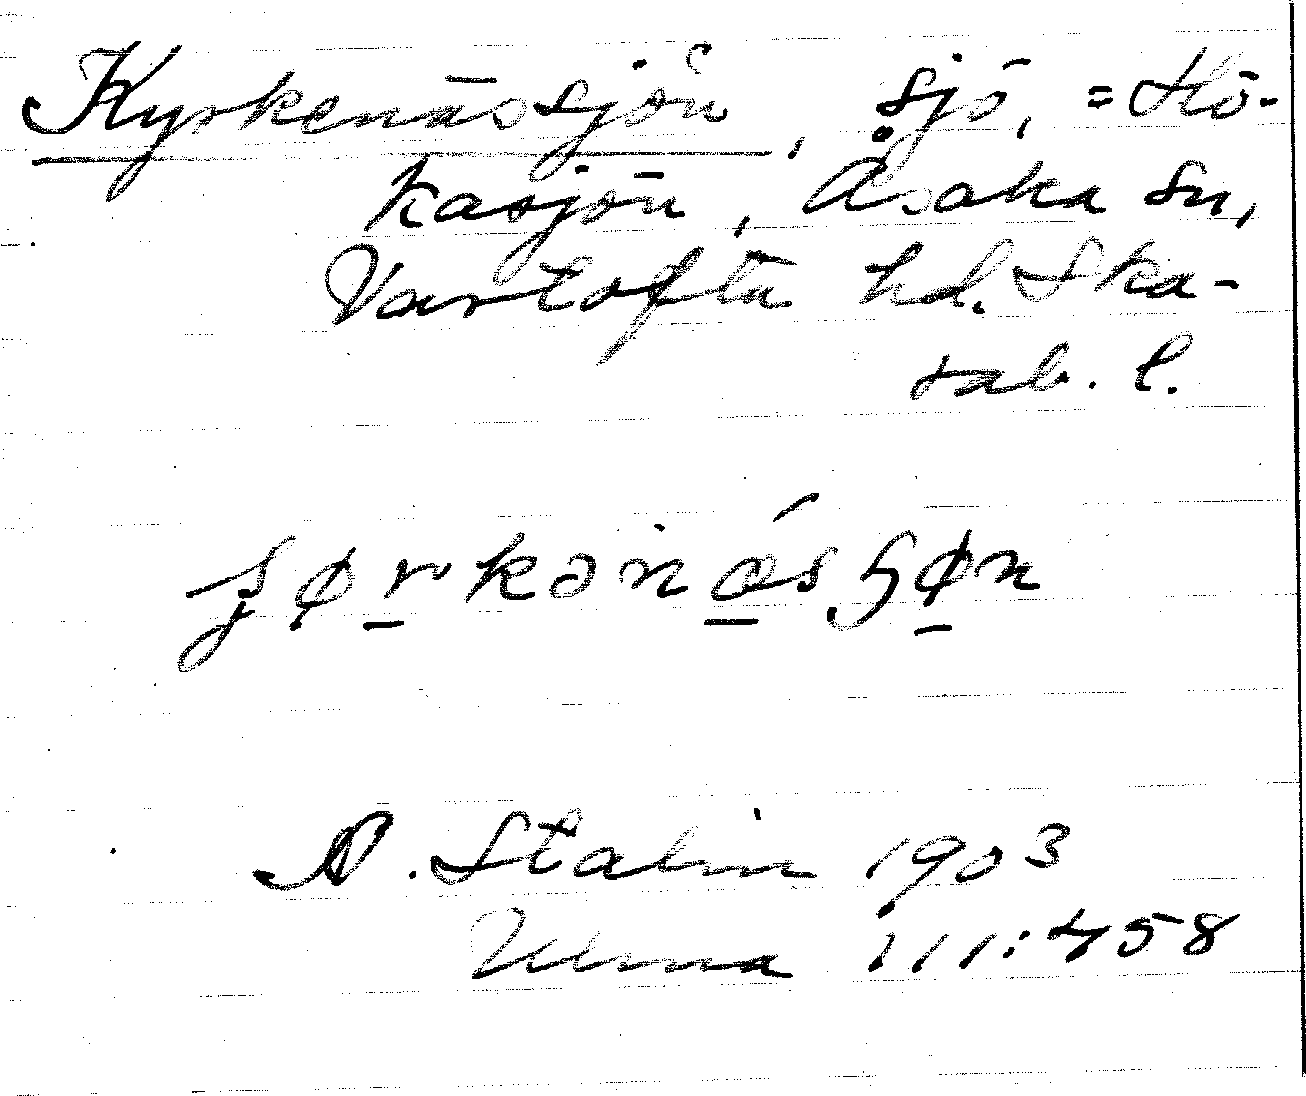 Kyrkenässjön, sjö, = Hö-
kasjön, Åsaka sn,
Vartofta hd. Ska-
rab. l.
N. Stalin 1903
Ulma 111:458